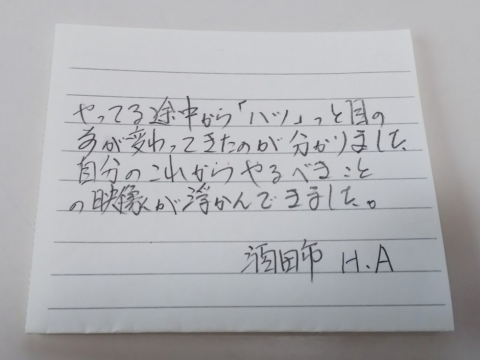 やってる途中から「ハッ」っと目の
方が変わってきたのが分かりました。
自分のこれからやるべきこと
の映像が浮かんできました。
酒田市 H.A